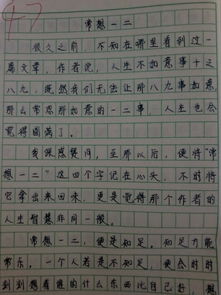 47
常想一二
很久之前，不知在哪里看到过一
篇文章，作者说，人生不如意事十之
八九，既然我们无法让那八九事如意，
那么常思那如意的一二事，人生也会
觉得圆满了。
我很感赞同，至那以后，便将“常
想一二”这四个字记在心头，不时将
它拿出来回味，更是觉得那个作者的
人生智慧非同一般。
常想一二，便是知足。知足方能
常乐，一个人若是不知足，便会时时
刻刻想着谁的什么东西比自己好，想